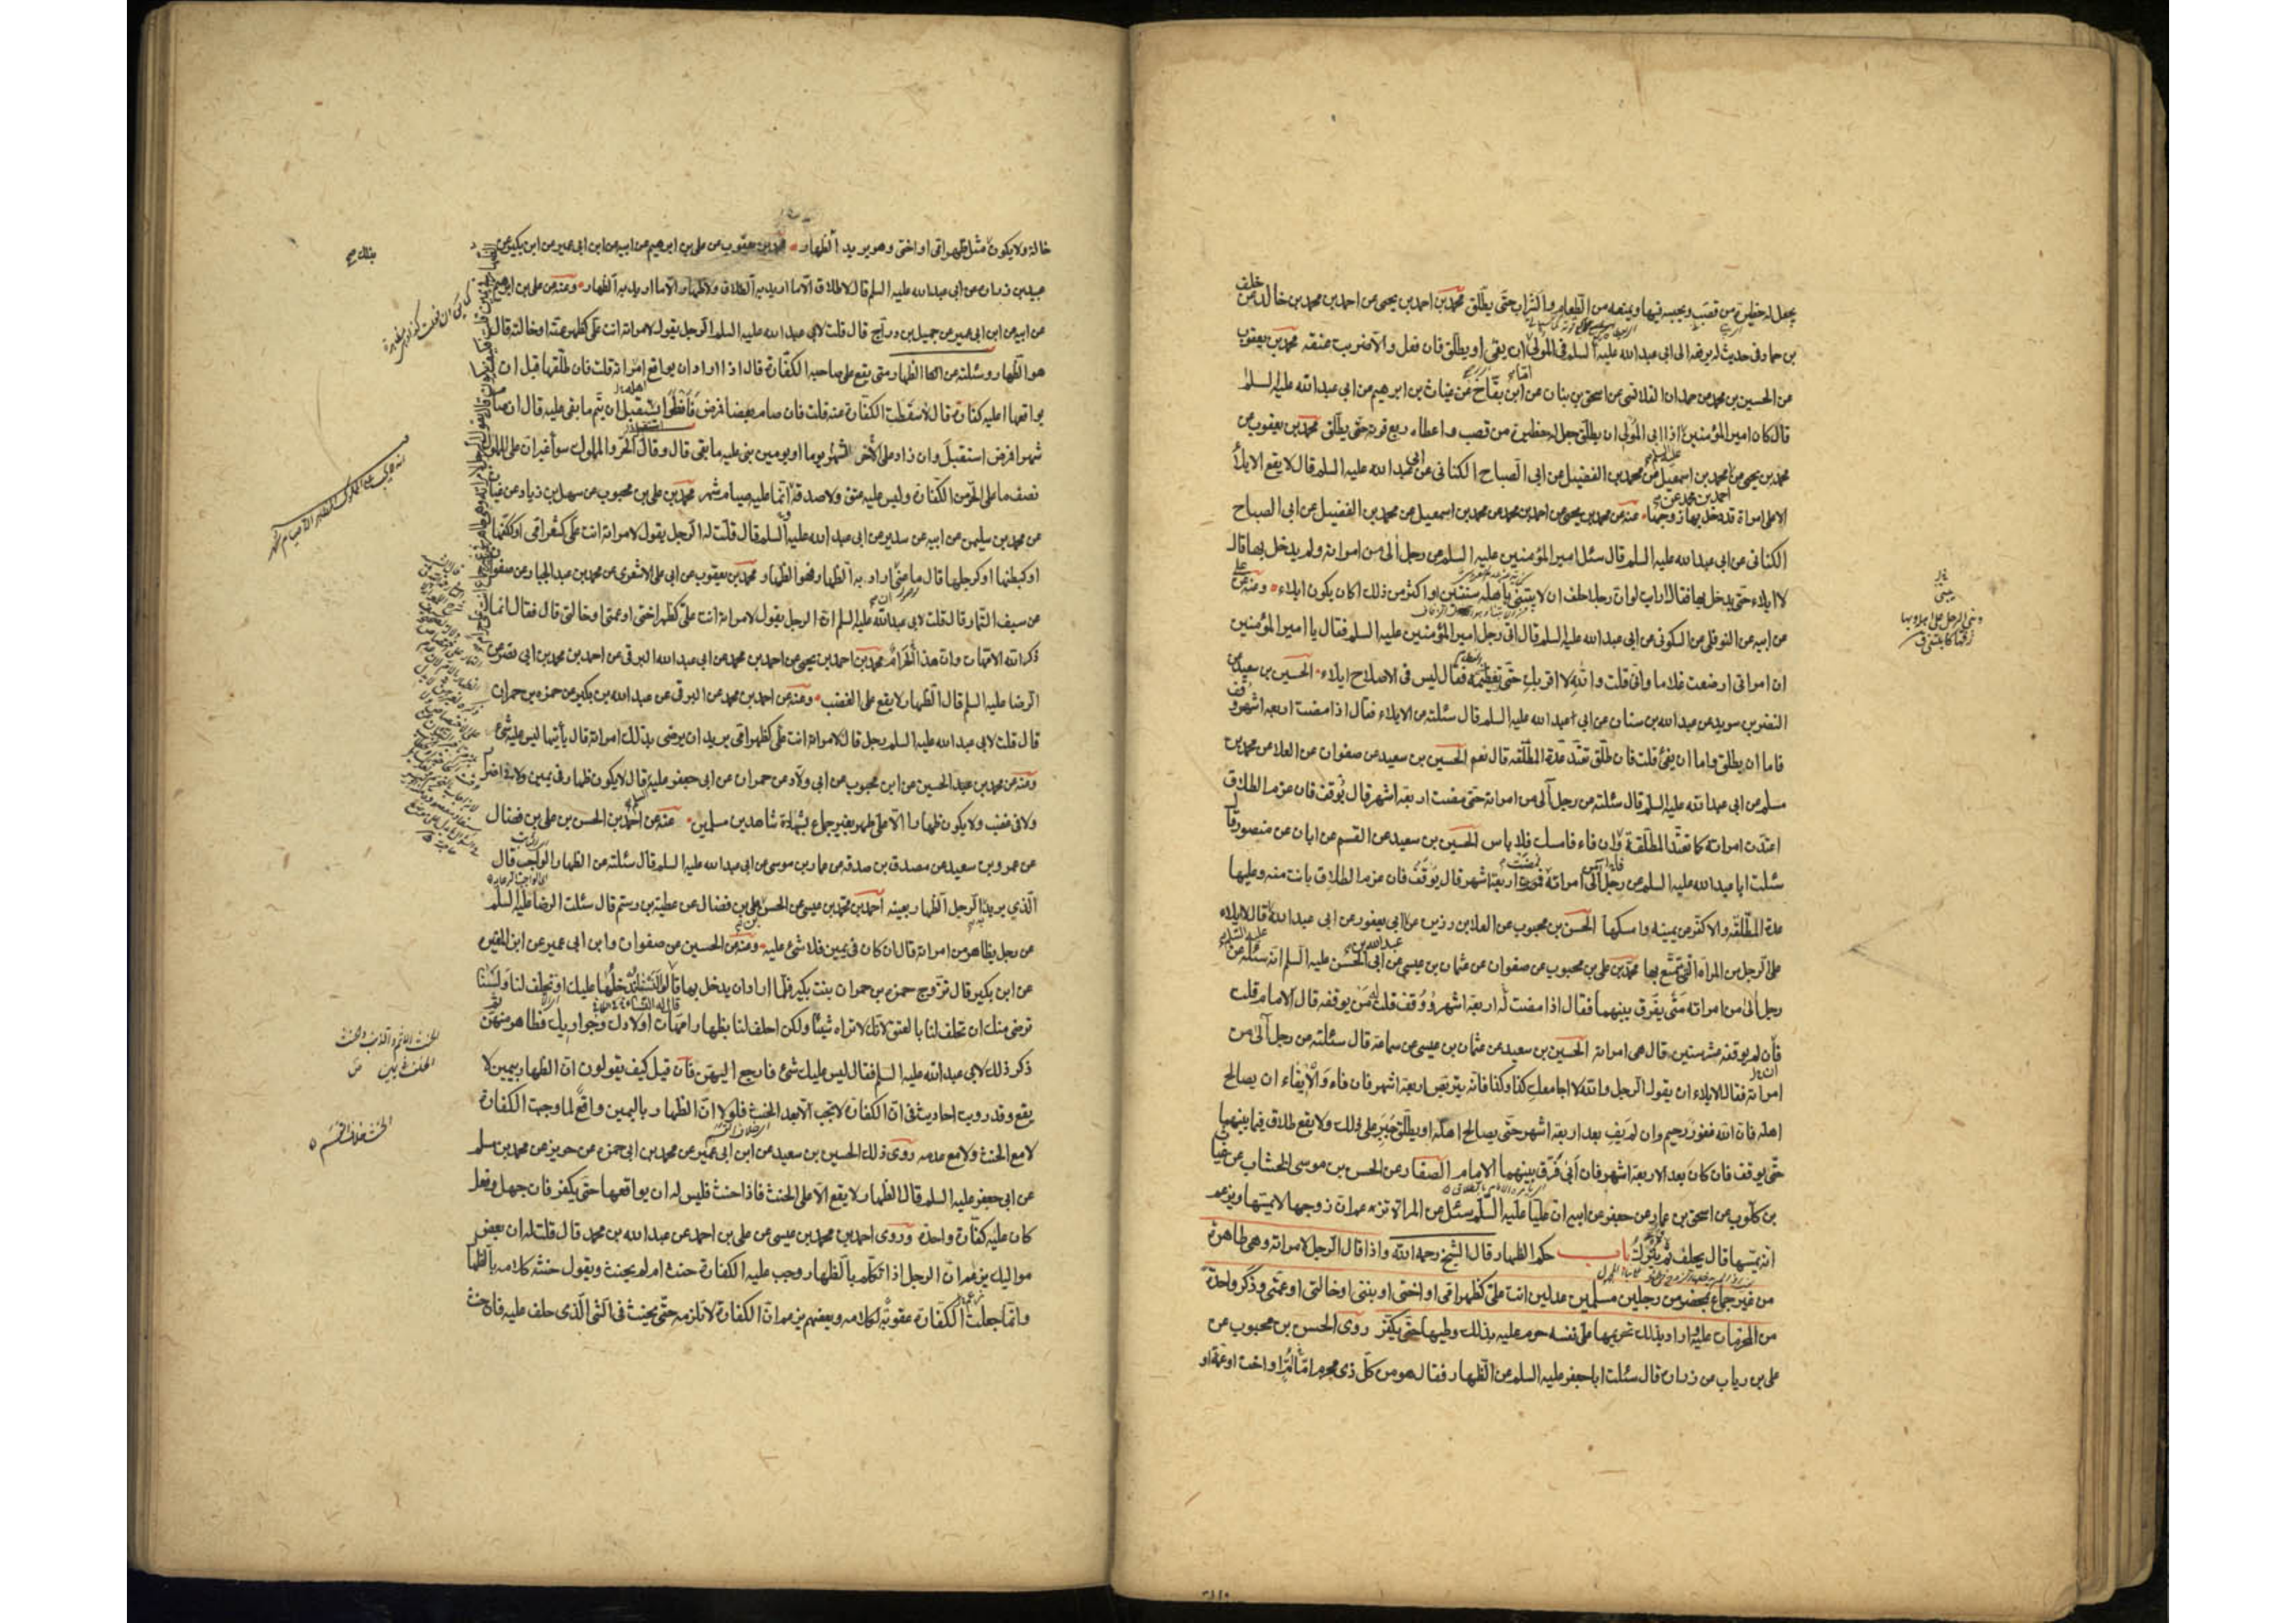 يجعل له حظيرة من قصب ويحبسه فيها ويمنعه من الطعام والشراب حتى يطلق محمد بن احمد بن يحيى عن احمد بن محمد بن خالد عن خلف
بن حماد في حديث له يرفعه الى ابي عبد الله عليه السلم في المولي ان يفئ او يطلق فان فعل والا ضرب عنقه محمد بن يعقوب
عن الحسين بن محمد عن حمدان القلانسي عن اسحق بن بنان عن ابن بقاح عن غياث بن ابرهيم عن ابي عبد الله عليه السلم
قال كان امير المؤمنين اذا ابى المولي ان يطلق جعل له حظيرة من قصب واعطاه ربع قوته حتى يطلق محمد بن يعقوب عن
محمد بن يحيى عن محمد بن اسمعيل عن محمد بن الفضيل عن ابي الصباح الكناني عن ابي عبد الله عليه السلم قال لا يقع الايلاء
الا على امراة قد دخل بها زوجها عنه عن محمد بن يحيى عن احمد بن محمد عن محمد بن اسمعيل عن محمد بن الفضيل عن ابي الصباح
الكناني عن ابي عبد الله عليه السلم قال سئل امير المؤمنين عليه السلم عن رجل آلى من امراته ولم يدخل بها قال
لا ايلاء حتى يدخل بها فقال ارايت لو ان رجلا حلف ان لا يبتني باهله سنتين او اكثر من ذلك اكان يكون ايلاء ومنه عن علي
عن ابيه عن النوفلي عن السكوني عن ابي عبد الله عليه السلم قال اتى رجل امير المؤمنين عليه السلم فقال يا امير المؤمنين
ان امراتي ارضعت غلاما واني قلت والله لا اقربك حتى تفطميه فقال ليس في الاصلاح ايلاء الحسين بن سعيد عن
النضر بن سويد عن عبد الله بن سنان عن ابي عبد الله عليه السلم قال سئلته عن الايلاء فقال اذا مضت اربعة اشهر وقف
فاما ان يطلق واما ان يفئ قلت فان طلق تعتد عدة المطلقه قال نعم الحسين بن سعيد عن صفوان عن العلا عن محمد بن
مسلم عن ابي عبد الله عليه السلم قال سئلته عن رجل آلى من امراته حتى مضت اربعة اشهر قال يوقف فان عزم الطلاق
اعتدت امراته كما تعتد المطلقة وان فاء فامسك فلا باس الحسين بن سعيد عن القسم عن ابان عن منصور قال
سئلت ابا عبد الله عليه السلم عن رجل آلى من امراته فمضت اربعة اشهر قال يوقف فان عزم الطلاق بانت منه وعليها
عدة المطلقه والا كفر عن يمينه وامسكها الحسن بن محبوب عن العلا بن رزين عن ابي يعفور عن ابي عبد الله قال لا ايلاء
على الرجل من المراة التي تمتع بها محمد بن علي بن محبوب عن صفوان عن عثمان بن عيسى عن ابي الحسن عليه السلم انه سئله عن
رجل آلى من امراته متى يفرق بينهما فقال اذا مضت له اربعة اشهر ووقف قلت له من يوقفه قال الامام قلت
فان لم يوقفه عشر سنين قال هي امراته الحسين بن سعيد عن عثمان بن عيسى عن سماعة قال سئلته عن رجل آلى من
امراته فقال الايلاء ان يقول الرجل والله لا اجامعك كذا وكذا فانه يتربص اربعة اشهر فان فاء والايفاء ان يصالح
اهله فان الله غفور رحيم وان لم يف بعد اربعة اشهر حتى يصالح اهله او يطلق جبر على ذلك ولا يقع طلاق فيما بينهما
حتى يوقف فان كان بعد الاربعة اشهر فان ابى فرق بينهما الامام الصفار عن الحسن بن موسى الخشاب عن غياث
بن كلوب عن اسحق بن عمار عن جعفر عن ابيه ان عليا عليه السلم سئل عن المراة تزعم ان زوجها لا يمسها ويزعم
انه يمسها قال يحلف ثم يترك باب حكم الظهار قال الشيخ رحمه الله واذا قال الرجل لامراته وهي طاهرة
من غير جماع بمحضر من رجلين مسلمين عدلين انت علي كظهر امي او اختي او بنتي او خالتي او عمتي وذكر واحدة
من المحرمات عليه واراد بذلك تحريمها على نفسه حرم عليه بذلك وطيها حتى يكفر روى الحسن بن محبوب عن
علي بن رياب عن زرارة قال سئلت ابا جعفر عليه السلم عن الظهار فقال هو من كل ذي محرم اما او اخت او عمة او
خالة ولا يكون مثل ظهر امي او اختي وهو يريد الظهار محمد بن يعقوب عن علي بن ابرهيم عن ابيه عن ابن ابي عمير عن ابن بكير عن
عبيد بن زرارة عن ابي عبد الله عليه السلم قال لا طلاق الا ما اريد به الطلاق ولا ظهار الا ما اريد به الظهار ومنه عن علي بن ابرهيم
عن ابيه عن ابن ابي عمير عن جميل بن دراج قال قلت لابي عبد الله عليه السلم الرجل يقول لامراته انت علي كظهر عمته او خالته قال
هو الظهار وسئلته عن الظهار متى يقع على صاحبه الكفارة قال اذا اراد ان يواقع امراته قلت فان طلقها قبل ان
يواقعها اعليه كفارة قال لا سقطت الكفارة عنه قلت فان صام بعضا فمرض فافطر ايستقبل ام يتم ما بقي عليه قال ان صام
شهرا فمرض استقبل وان زاد على الشهر الآخر يوما او يومين بنى عليه ما بقي قال وقال الحر والمملوك سواء غير ان على المملوك
نصف ما على الحر من الكفارة وليس عليه عتق ولا صدقة انما عليه صيام شهر محمد بن علي بن محبوب عن سهل بن زياد عن غياث
عن محمد بن سليمن عن ابيه عن سدير عن ابي عبد الله عليه السلم قال قلت له الرجل يقول لامراته انت علي كشعر امي او ككفها
او كبطنها او كرجلها قال ما عنى ان اراد به الظهار فهو الظهار محمد بن يعقوب عن ابي علي الاشعري عن محمد بن عبد الجبار عن صفوان
عن سيف التمار قال قلت لابي عبد الله عليه السلم ان الرجل يقول لامراته انت علي كظهر اختي او عمتي او خالتي قال فقال انما
ذكر الله الامهات وان هذا لحرام محمد بن احمد بن يحيى عن احمد بن محمد عن ابي عبد الله البرقي عن احمد بن محمد بن ابي نصر عن
الرضا عليه السلم قال الظهار لا يقع على الغضب ومنه عن احمد بن محمد عن البرقي عن عبد الله بن بكير عن حمزه بن حمران
قال قلت لابي عبد الله عليه السلم رجل قال لامراته انت علي كظهر امي يريد ان يرضي بذلك امراته قال ياتيها ليس عليه شئ
ومنه عن محمد بن عبد الحسين عن ابن محبوب عن ابي ولاد عن حمران عن ابي جعفر عليه قال لا يكون ظهار في يمين ولا في اضرار
ولا في غضب ولا يكون ظهارا الا على طهر بغير جماع بشهادة شاهدين مسلمين عنه عن احمد بن الحسن بن علي بن فضال
عن عمرو بن سعيد عن مصدق بن صدقه عن عمار بن موسى عن ابي عبد الله عليه السلم قال سئلته عن الظهار الواجب قال
الذي يريد الرجل الظهار بعينه احمد بن محمد بن عيسى عن الحسن بن علي بن فضال عن عطية بن رستم قال سئلت الرضا عليه السلم
عن رجل يظاهر من امراته قال ان كان في يمين فلا شئ عليه ومنه عن الحسين عن صفوان وابن ابي عمير عن ابن المغيره
عن ابن بكير قال تزوج حمزه بن حمران بنت بكير فلما اراد ان يدخل بها قال له النساء لا ندخلها عليك او تحلف لنا ولسنا
نرضى منك ان تحلف لنا بالعتق لانك لا تراه شيئا ولكن احلف لنا بظهار امهات اولادك وجواريك فظاهر منهن
ذكر ذلك لابي عبد الله عليه السلم فقال ليس عليك شئ فارجع اليهن فان قيل كيف يقولون ان الظهار بيمين لا
يقع وقد رويت احاديث في ان الكفارة لا تجب الا بعد الحنث فلولا ان الظهار باليمين واقع لما وجبت الكفارة
لا مع الحنث ولا مع عدمه روى ذلك الحسين بن سعيد عن ابن ابي عمير عن محمد بن ابي حمزه عن حريز عن محمد بن مسلم
عن ابي جعفر عليه السلم قال الظهار لا يقع الا على الحنث فاذا حنث فليس له ان يواقعها حتى يكفر فان جهل وفعل
كان عليه كفارة واحدة وروى احمد بن محمد بن عيسى عن علي بن احمد عن عبد الله بن محمد قال قلت له ان بعض
مواليك يزعم ان الرجل اذا تكلم بالظهار وجب عليه الكفارة حنث ام لم يحنث ويقول حنثه كلامه بالظهار
وانما جعلت الكفارة عقوبة لكلامه وبعضهم يزعم ان الكفارة لا تلزمه حتى يحنث في الشئ الذي حلف عليه فان حنث